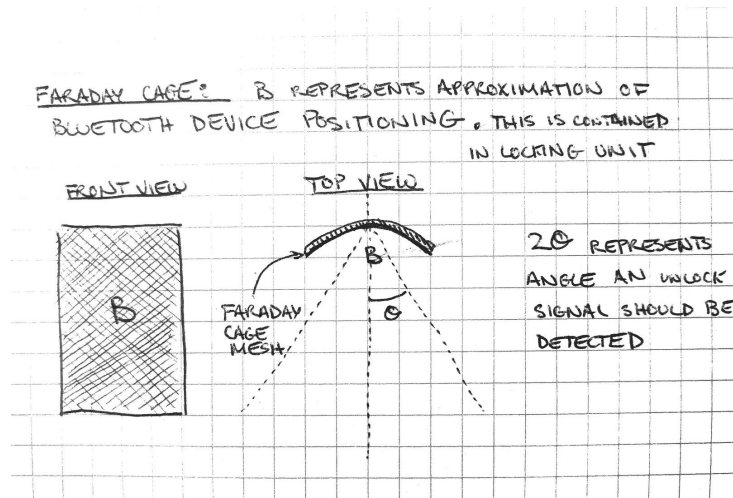 FARADAY CAGE: B REPRESENTS APPROXIMATION OF
BLUETOOTH DEVICE POSITIONING. THIS IS CONTAINED
IN LOCKING UNIT
FRONT VIEW
TOP VIEW
B
B
FARADAY
CAGE
MESH
θ
2θ REPRESENTS
ANGLE AN UNLOCK
SIGNAL SHOULD BE
DETECTED